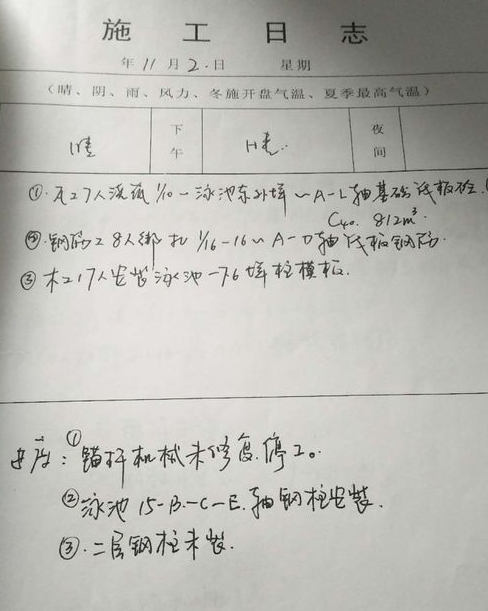 施工日志
年 11 月 2 日 星期
(晴、阴、雨、风力、冬施开盘气温、夏季最高气温)
晴 下午 晴 夜间
①. 瓦工7人浇砼 1/10 - 泳池东外墙 ~ A-L轴基础伐板砼.
C40. 812m³.
②. 钢筋工8人绑扎 1/16-16~A-D轴伐板钢筋.
③ 木工17人安装泳池-7.6墙柱模板.
进度: ① 锚杆机械未修复.停工。
② 泳池 15-B-C-E.轴钢柱安装.
③. 二层钢柱未装.